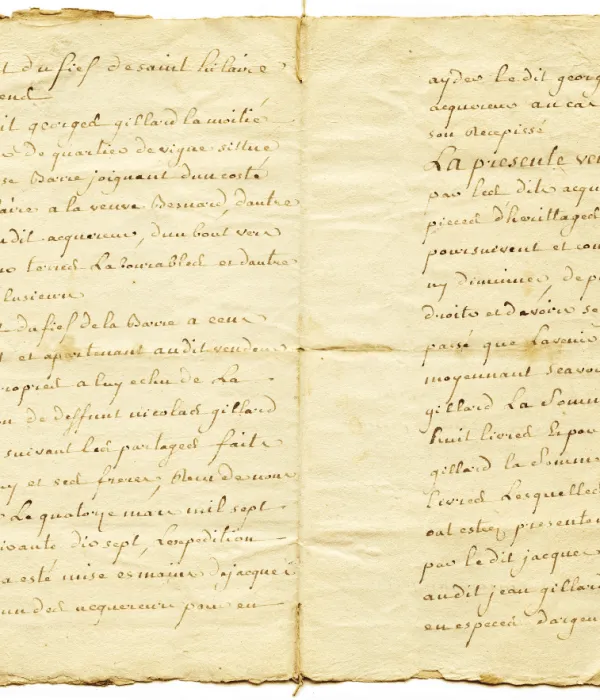 t du fief de saint hilaire
end
it georges gillard la moitié
de quartier de vigne sittué
se Barre joignant d'un costé
aire a la veuve Besnard, d'autre
udit acquereur, d'un bout vers
terres Labourables et d'autre
lusieurs
t du fief de la Barre a ceux
t et apartenant audit vendeur
ropres a luy echu de La
on de deffunt nicolas gillard
suivant les partages faits
uy et ses freres, de nous
Le quatorze mars mil sept
ixante dix sept, L'expedition
a esté mise es mains de jacques
un des acquereurs pour en
aydes le dit georg
acquereur au cas
son Recepissé
La presente ven
par les dits acqu
pieces d'herittages
poursuivent et con
ny diminuer, de p
droits et devoirs se
passé que Lavenir
moyennant scavoi
gillard La Somm
huit livres Et po
gillard la Somme
livres Lesquelles
ont estés presente
par le dit jacques
audit jean gillard
en especes d'argen